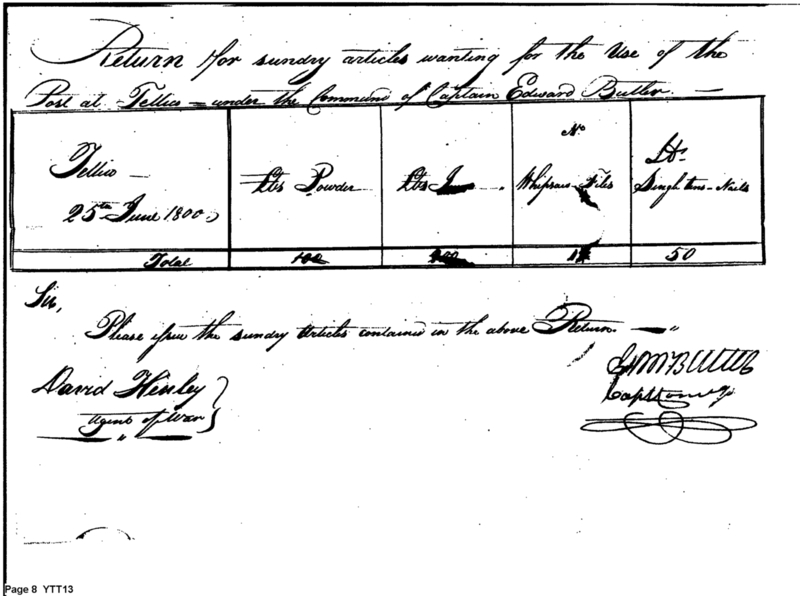 Return for sundry articles wanting for the Use of the
Post at Tellico - under the Command of Captain Edward Butler. -
Tellico -
25th June 1800
lbs Powder
lbs
No
Whipsaw Files
lbs
Singh tens - Nails
Total 100 50
Sir,
Please issue the sundry Articles contained in the above Return. -
David Henley
Agent of War
Edwd Butler
Capt Comg
Page 8 YTT13